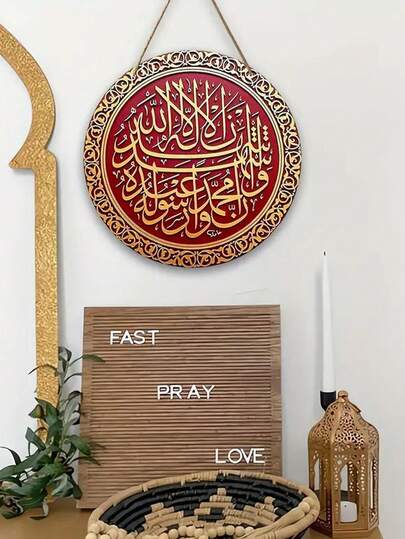 اشهد ان لا اله الا الله واشهد ان محمدا عبده ورسوله
FAST
PRAY
LOVE